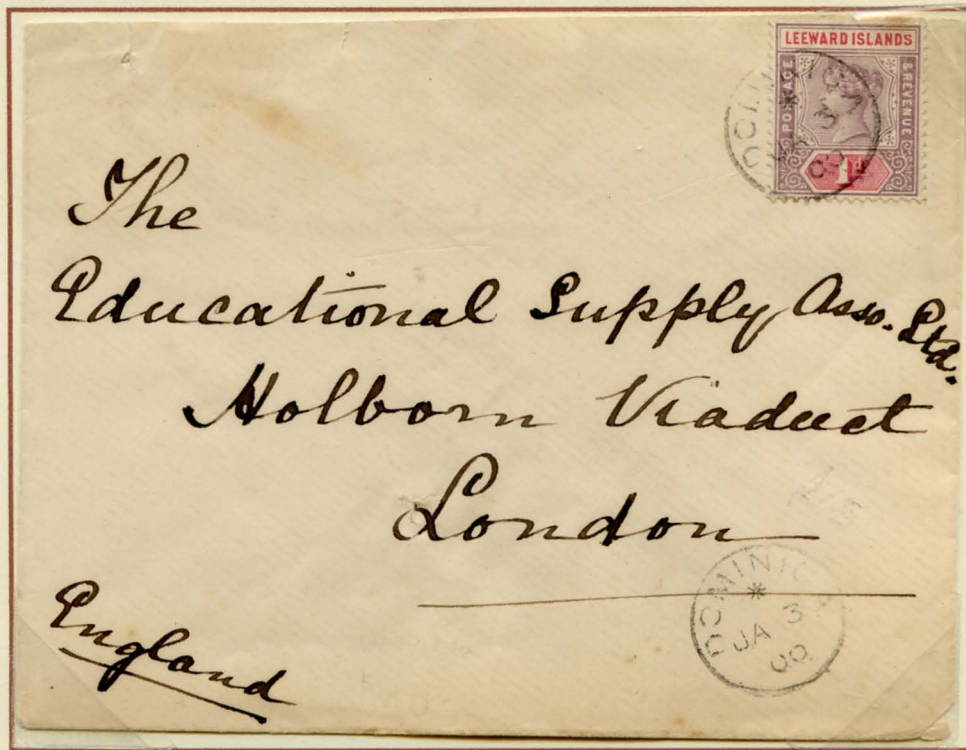 LEEWARD ISLANDS
POSTAGE & REVENUE
1D
DOMINICA
*
JA 3
00
The
Educational Supply Asso. Ltd.
Holborn Viaduct
London
England
DOMINICA
*
JA 3
00